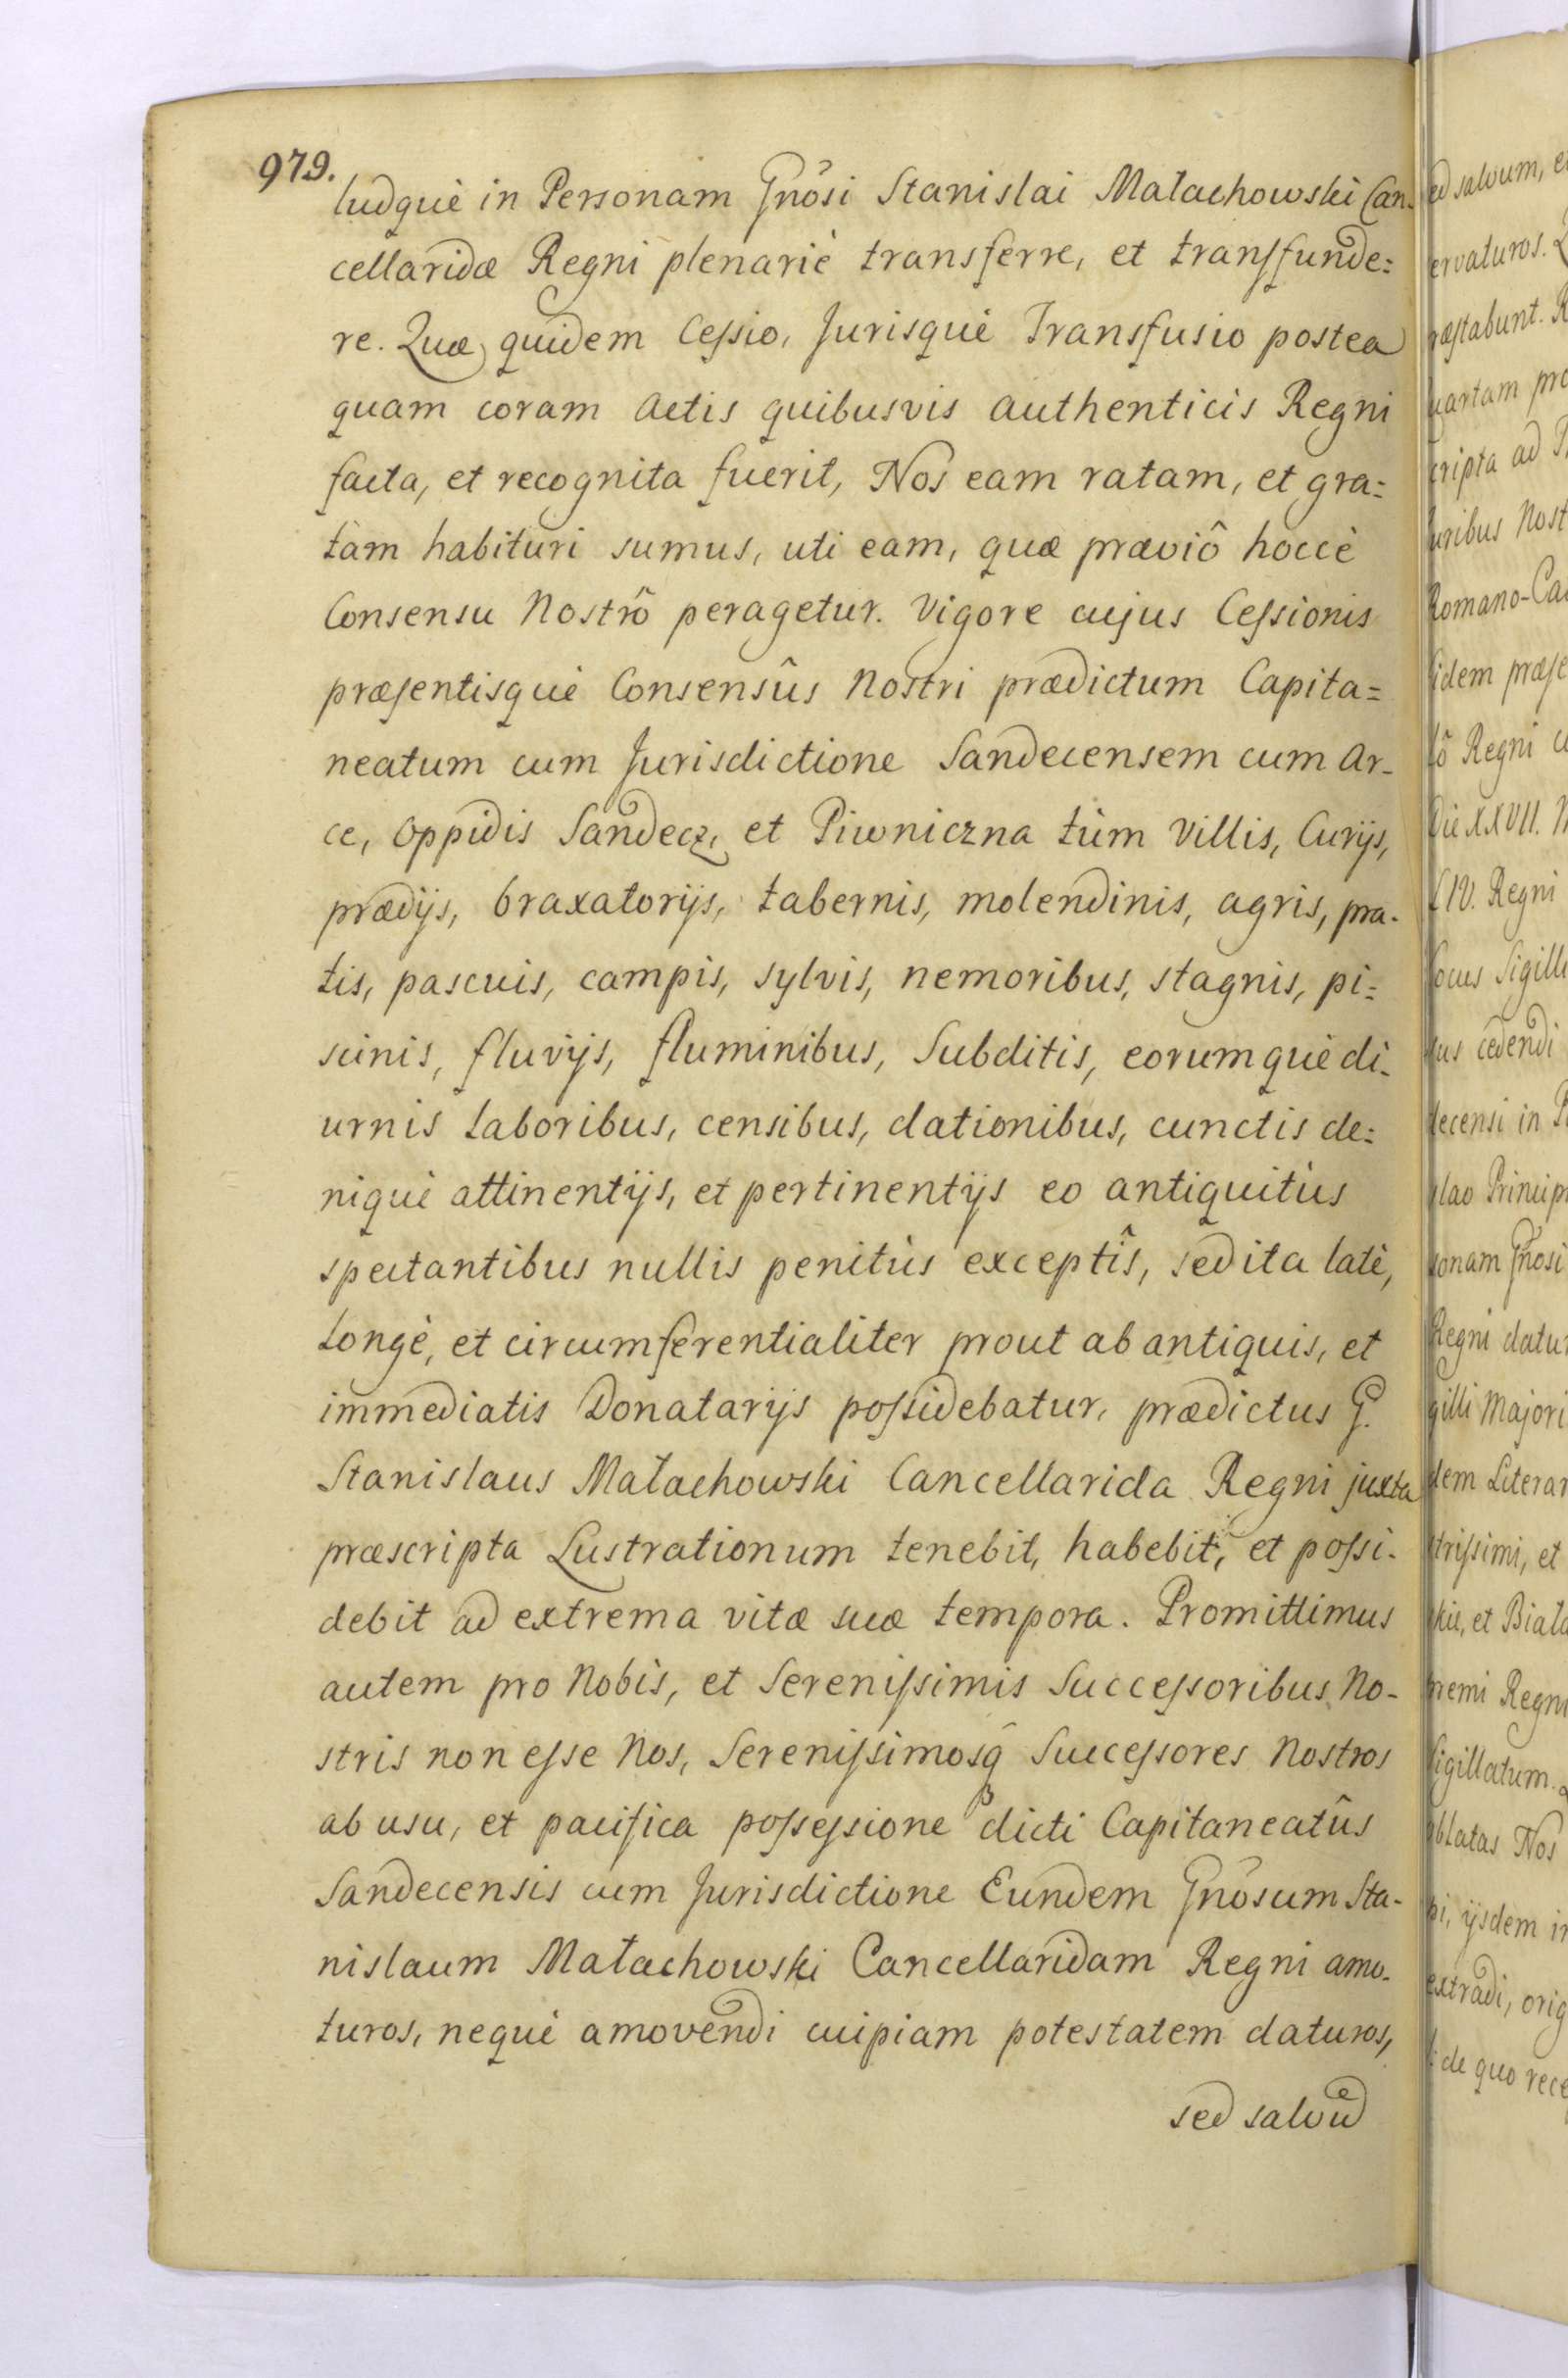 979.
ludquè in Personam Gnôsi Stanislai Małachowski Can-
cellaridæ Regni plenariè transferre, et transfunde=
re. Quæ quidem Cessio, Jurisquè Transfusio postea
quam coram Actis quibusvis authenticis Regni
facta, et recognita fuerit, Nos eam ratam, et gra=
tam habituri sumus, uti eam, quæ præviô hoccè
Consensu Nostrô peragetur. Vigore cujus Cessionis
præsentisquè Consensûs Nostri prædictum Capita=
neatum cum Jurisdictione Sandecensem cum Ar-
ce, Oppidis Sandecz, et Piwniczna tùm Villis, Curijs,
prædijs, braxatorijs, tabernis, molendinis, agris, pra-
tis, pascuis, campis, sylvis, nemoribus, stagnis, pi=
scinis, fluvijs, fluminibus, Subditis, eorumquè di-
urnis laboribus, censibus, dationibus, cunctis de=
niquè attinentijs, et pertinentijs eo antiquitùs
spectantibus nullis penitùs exceptîs, sed ita latè,
longè, et circumferentialiter prout ab antiquis, et
immediatis Donatarijs possidebatur, prædictus G.
Stanislaus Małachowski Cancellarida Regni juxta
præscripta Lustrationum tenebit, habebit, et possi-
debit ad extrema vitæ suæ tempora. Promittimus
autem pro Nobis, et Serenissimis Successoribus No-
stris non esse Nos, Serenissimosq̃ Successores Nostros
ab usu, et pacifica possessione dicti Capitaneatûs
Sandecensis cum Jurisdictione Eundem Gnôsum Sta-
nislaum Małachowski Cancellaridam Regni amo-
turos, nequè amovendi cuipiam potestatem daturos,
sed salvũ
ed salvum, e
ervaturos.
ræstabunt. R
uartam pro
cripta ad
uribus Nost
Romano-Ca
fidem præse
lô Regni
Die XXVII.
LIV. Regni
Locus Sigilli
us cedendi
decensi in P
slao Princip
sonam Gnôsi
Regni datu
gilli Majori
dem Literar
trissimi, et
kie, et Biała
remi Regni
Sigillatum.
oblatas Nos
pi, ijsdem in
extradi, orig
de quo rece